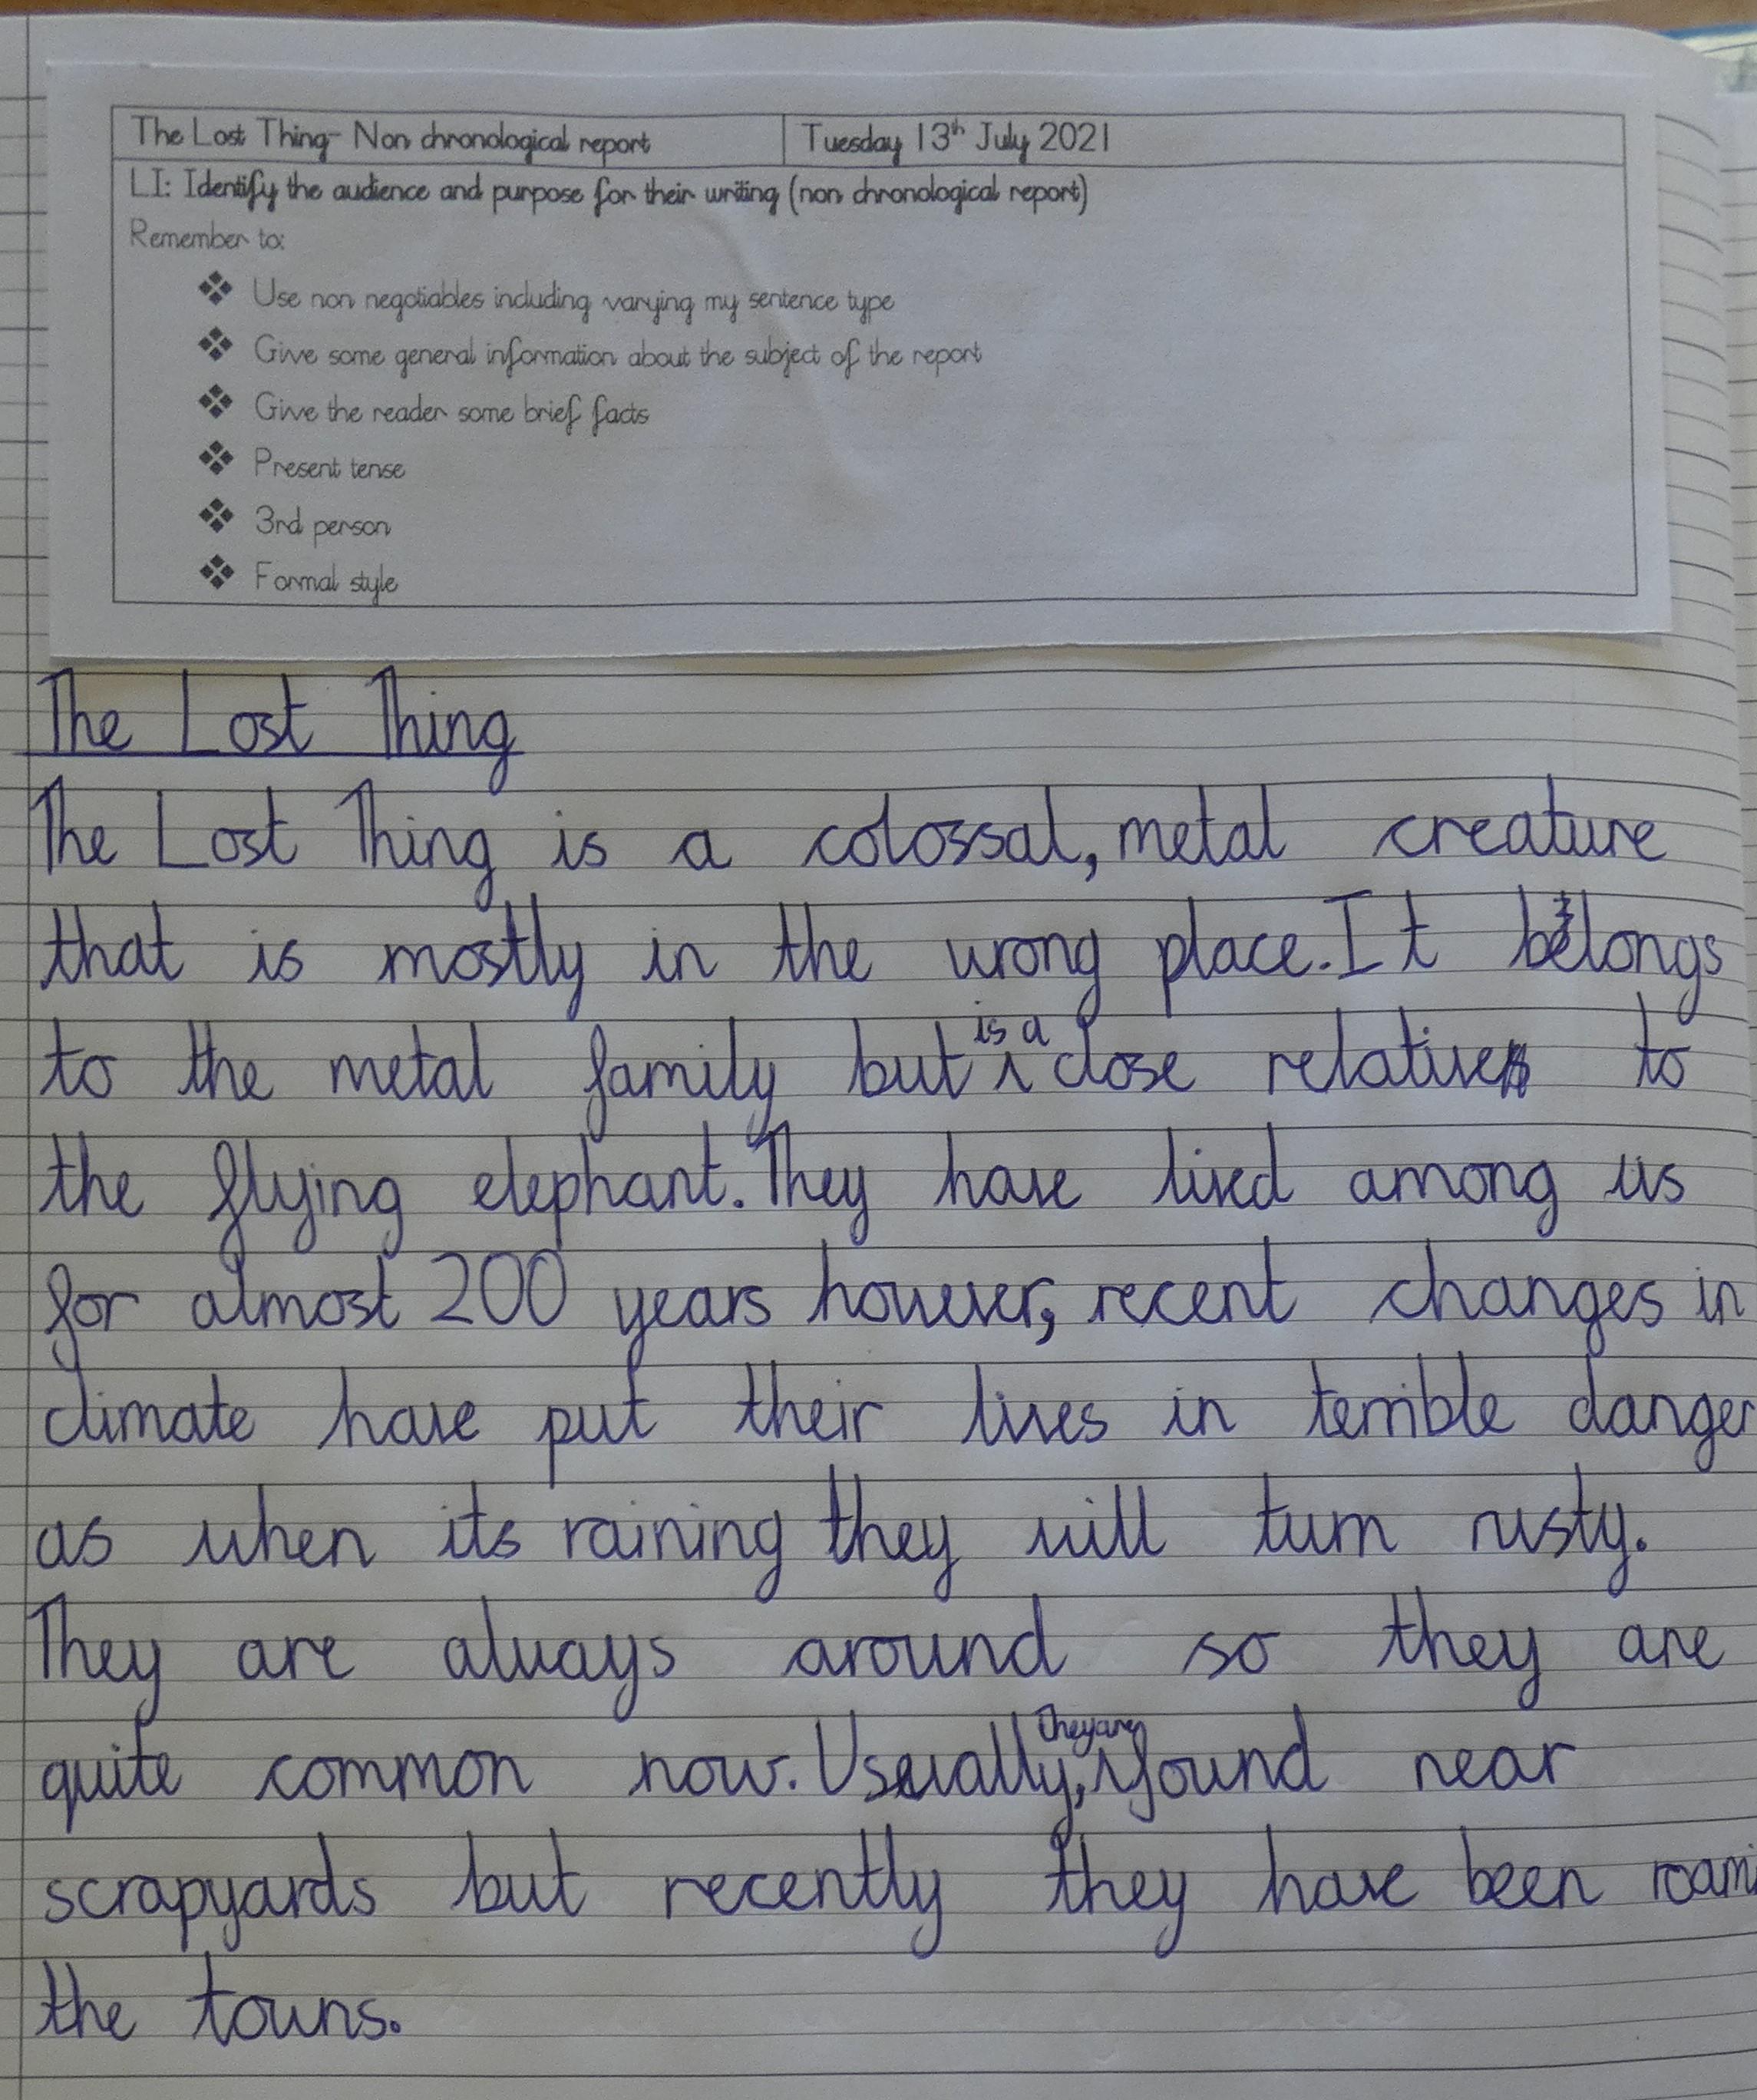 The Lost Thing- Non chronological report Tuesday 13th July 2021
LI: Identify the audience and purpose for their writing (non chronological report)
Remember to:
❖ Use non negotiables including varying my sentence type
❖ Give some general information about the subject of the report
❖ Give the reader some brief facts
❖ Present tense
❖ 3rd person
❖ Formal style
The Lost Thing
The Lost Thing is a colossal, metal creature
that is mostly in the wrong place. It belongs
to the metal family but is a close relative to
the flying elephant. They have lived among us
for almost 200 years however, recent changes in
climate have put their lives in terrible danger
as when its raining they will turn rusty.
They are always around so they are
quite common now. Usually, they are found near
scrapyards but recently they have been roami
the towns.